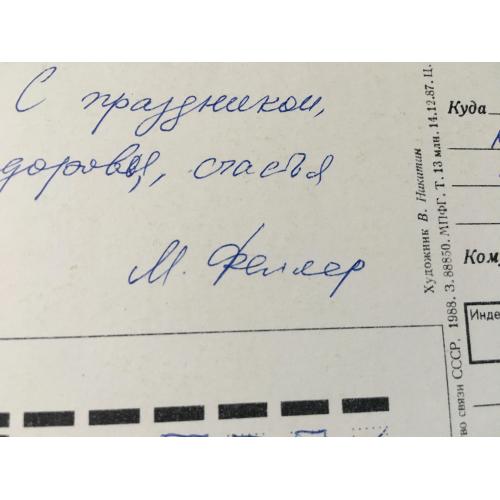 С праздником,
доровья, счастья
М. Феллер
Куда
Кому
Инде
Художник В. Никитин
во связи СССР, 1988. З. 88850. МПФГ. Т. 13 млн. 14.12.87. Ц.